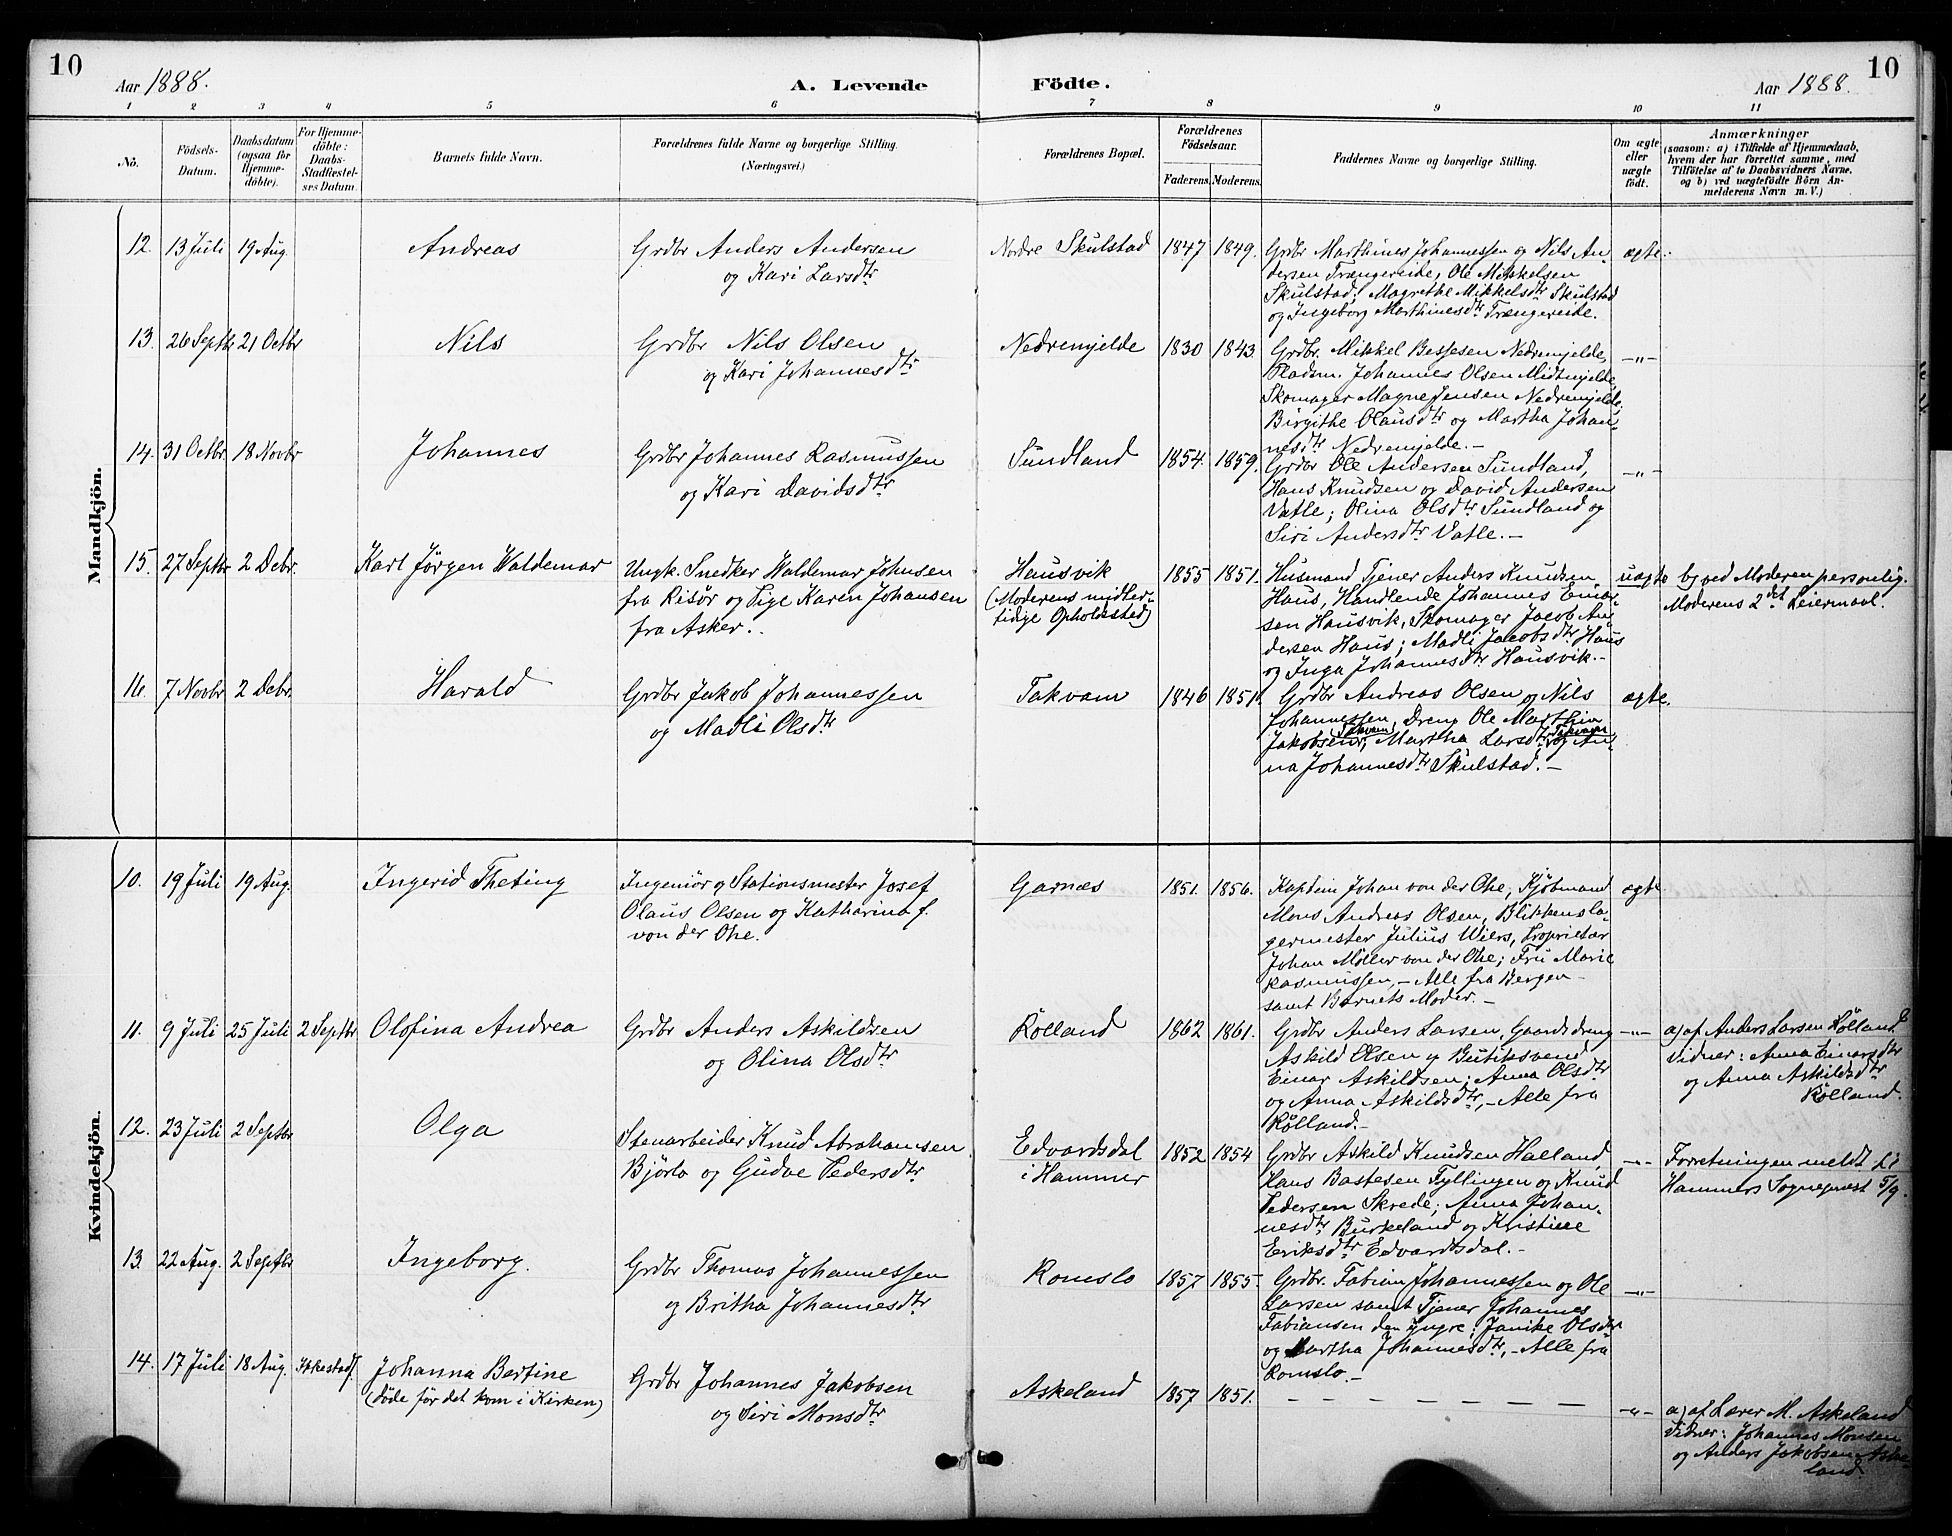 10
Aar 1888.
A. Levende
Födte.
Aar 1888.
10
1 2 3 4 5 6 7 8 9 10 11
No.
Födsels-
Datum.
Daabsdatum
(ogsaa for
Hjemme-
döbte).
For Hjemme-
döbte:
Daabs-
Stadfæstel-
ses Datum.
Barnets fulde Navn.
Forældrenes fulde Navne og borgerlige Stilling.
(Næringsvei.)
Forældrenes Bopæl.
Forældrenes
Födselsaar.
Faderens.
Moderens.
Faddernes Navne og borgerlige Stilling.
Om ægte
eller
uægte
födt.
Anmærkninger
(saasom: a) i Tilfælde af Hjemmedaab,
hvem der har forrettet samme, med
Tilföielse af to Daabsvidners Navne,
og b) ved uægtefödte Börn An-
melderens Navn m. V.)
Mandkjön.
12. 13 Juli 19 Aug. Andreas
Grdbr Anders Andersen
og Kari Larsdtr
Nordre Skulstad 1847 1849.
Grdbr Marthines Johannessen og Nils An-
dersen Trængereide, Ole Mikkelsen
Skulstad; Magrethe Mikkelsdtr Skulstad
og Ingeborg Marthinesdtr Trængereide.
ægte.
13. 26 Septbr 21 Octbr Nils
Grdbr Nils Olsen
og Kari Johannesdtr
Nedremjelde 1830 1843
Grdbr. Mikkel Bessesen Nedremjelde,
Pladsm. Johannes Olsen Midtmjelde,
Skomager Magne Jensen Nedremjelde;
Birgithe Olausdtr og Martha Johan-
nesdtr Nedremjelde.-
-"-
14. 31 Octbr 18 Novbr Johannes
Grdbr Johannes Rasmussen
og Kari Davidsdtr
Sundland 1854. 1859.
Grdbr Ole Andersen Sundland,
Hans Knudsen og David Andersen
Vatle; Olina Olsdtr Sundland og
Siri Andersdtr Vatle.-
-"-
15. 27 Septbr 2 Debr. Karl Jørgen Waldemar
Ungk. Snedker Waldemar Johnsen
fra Risør og Pige Karen Johansen
fra Asker..
Hausvik
(Moderens midler-
tidige Opholdssted)
1855 1851.
Husmand Tjener Anders Knudsen
Haus, Handlende Johannes Einar-
sen Hausvik, Skomager Jacob An-
dersen Haus; Madli Jacobsdtr Haus
og Inga Johannesdtr Hausvik.-
uægte
b) ved Moderen personlig.
Moderens 2det Leiermaal.
16. 7 Novbr. 2 Debr. Harald
Grdbr Jakob Johannessen
og Madli Olsdtr
Takvam 1846 1851.
Grdbr Andreas Olsen og Nils
Johannessen, Dreng Ole Marthin
Jakobsen Takvam; Martha Larsdtr Takvam og An-
na Johannesdtr Skulstad.-
ægte.
Kvindekjön.
10. 19 Juli 19 Aug. Ingerid Theting
Ingeniør og Stationsmester Josef
Olaus Olsen og Katharina f.
von der Ohe.
Garnæs 1851. 1856.
Kaptein Johan von der Ohe, Kjøbmand
Mons Andreas Olsen, Blikkensla-
germester Julius Wiers, Proprietær
Johan Møller von der Ohe; Fru Marie
Rasmussen,- Alle fra Bergen
samt Barnets Moder.-
ægte.
11. 9 Juli 25 Juli 2 Septbr Olofina Andrea
Grdbr Anders Askildsen
og Olina Olsdtr
Rølland 1862 1861.
Grdbr Anders Larsen, Gaardsdreng
Askild Olsen og Butiksvend
Einar Askildsen; Anna Olsdtr
og Anna Askildsdtr,- Alle fra
Rølland.-
-"-
a) af Anders Larsen Rølland
Vidner: Anna Einarsdtr
og Anna Askildsdtr
Rølland.
12. 23 Juli 2 Septbr Olga
Stenarbeider Knud Abrahamsen
Bjørlo og Gudve Pedersdtr
Edvardsdal
i Hammer
1852 1854
Grdbr Askild Knudsen Halland,
Hans Bastesen Fyllingen og Knud
Pedersen Skrede; Anna Johan-
nesdtr Burkeland og Kristine
Eriksdtr Edvardsdal.-
-"-
Forretningen meldt til
Hammers Sogneprest 5/9.
13. 22 Aug. 2 Septbr Ingeborg.
Grdbr Thomas Johannessen
og Britha Johannesdtr
Romslo 1857 1855.
Grdbr. Fabian Johannessen og Ole
Larsen samt Tjener Johannes
Fabiansen den yngre; Janike Olsdtr
og Martha Johannesdtr,- Alle fra
Romslo.-
-"-
14. 17 Juli 18 Aug. Ikkestadf. Johanna Bertine
(døde før det kom i Kirken)
Grdbr Johannes Jakobsen
og Siri Monsdtr
Askeland 1857 1851.
- - - - - - - -
-"-
a) af Lærer M. Askeland
Vidner: Johannes Monsen
og Anders Jakobsen Aske-
land